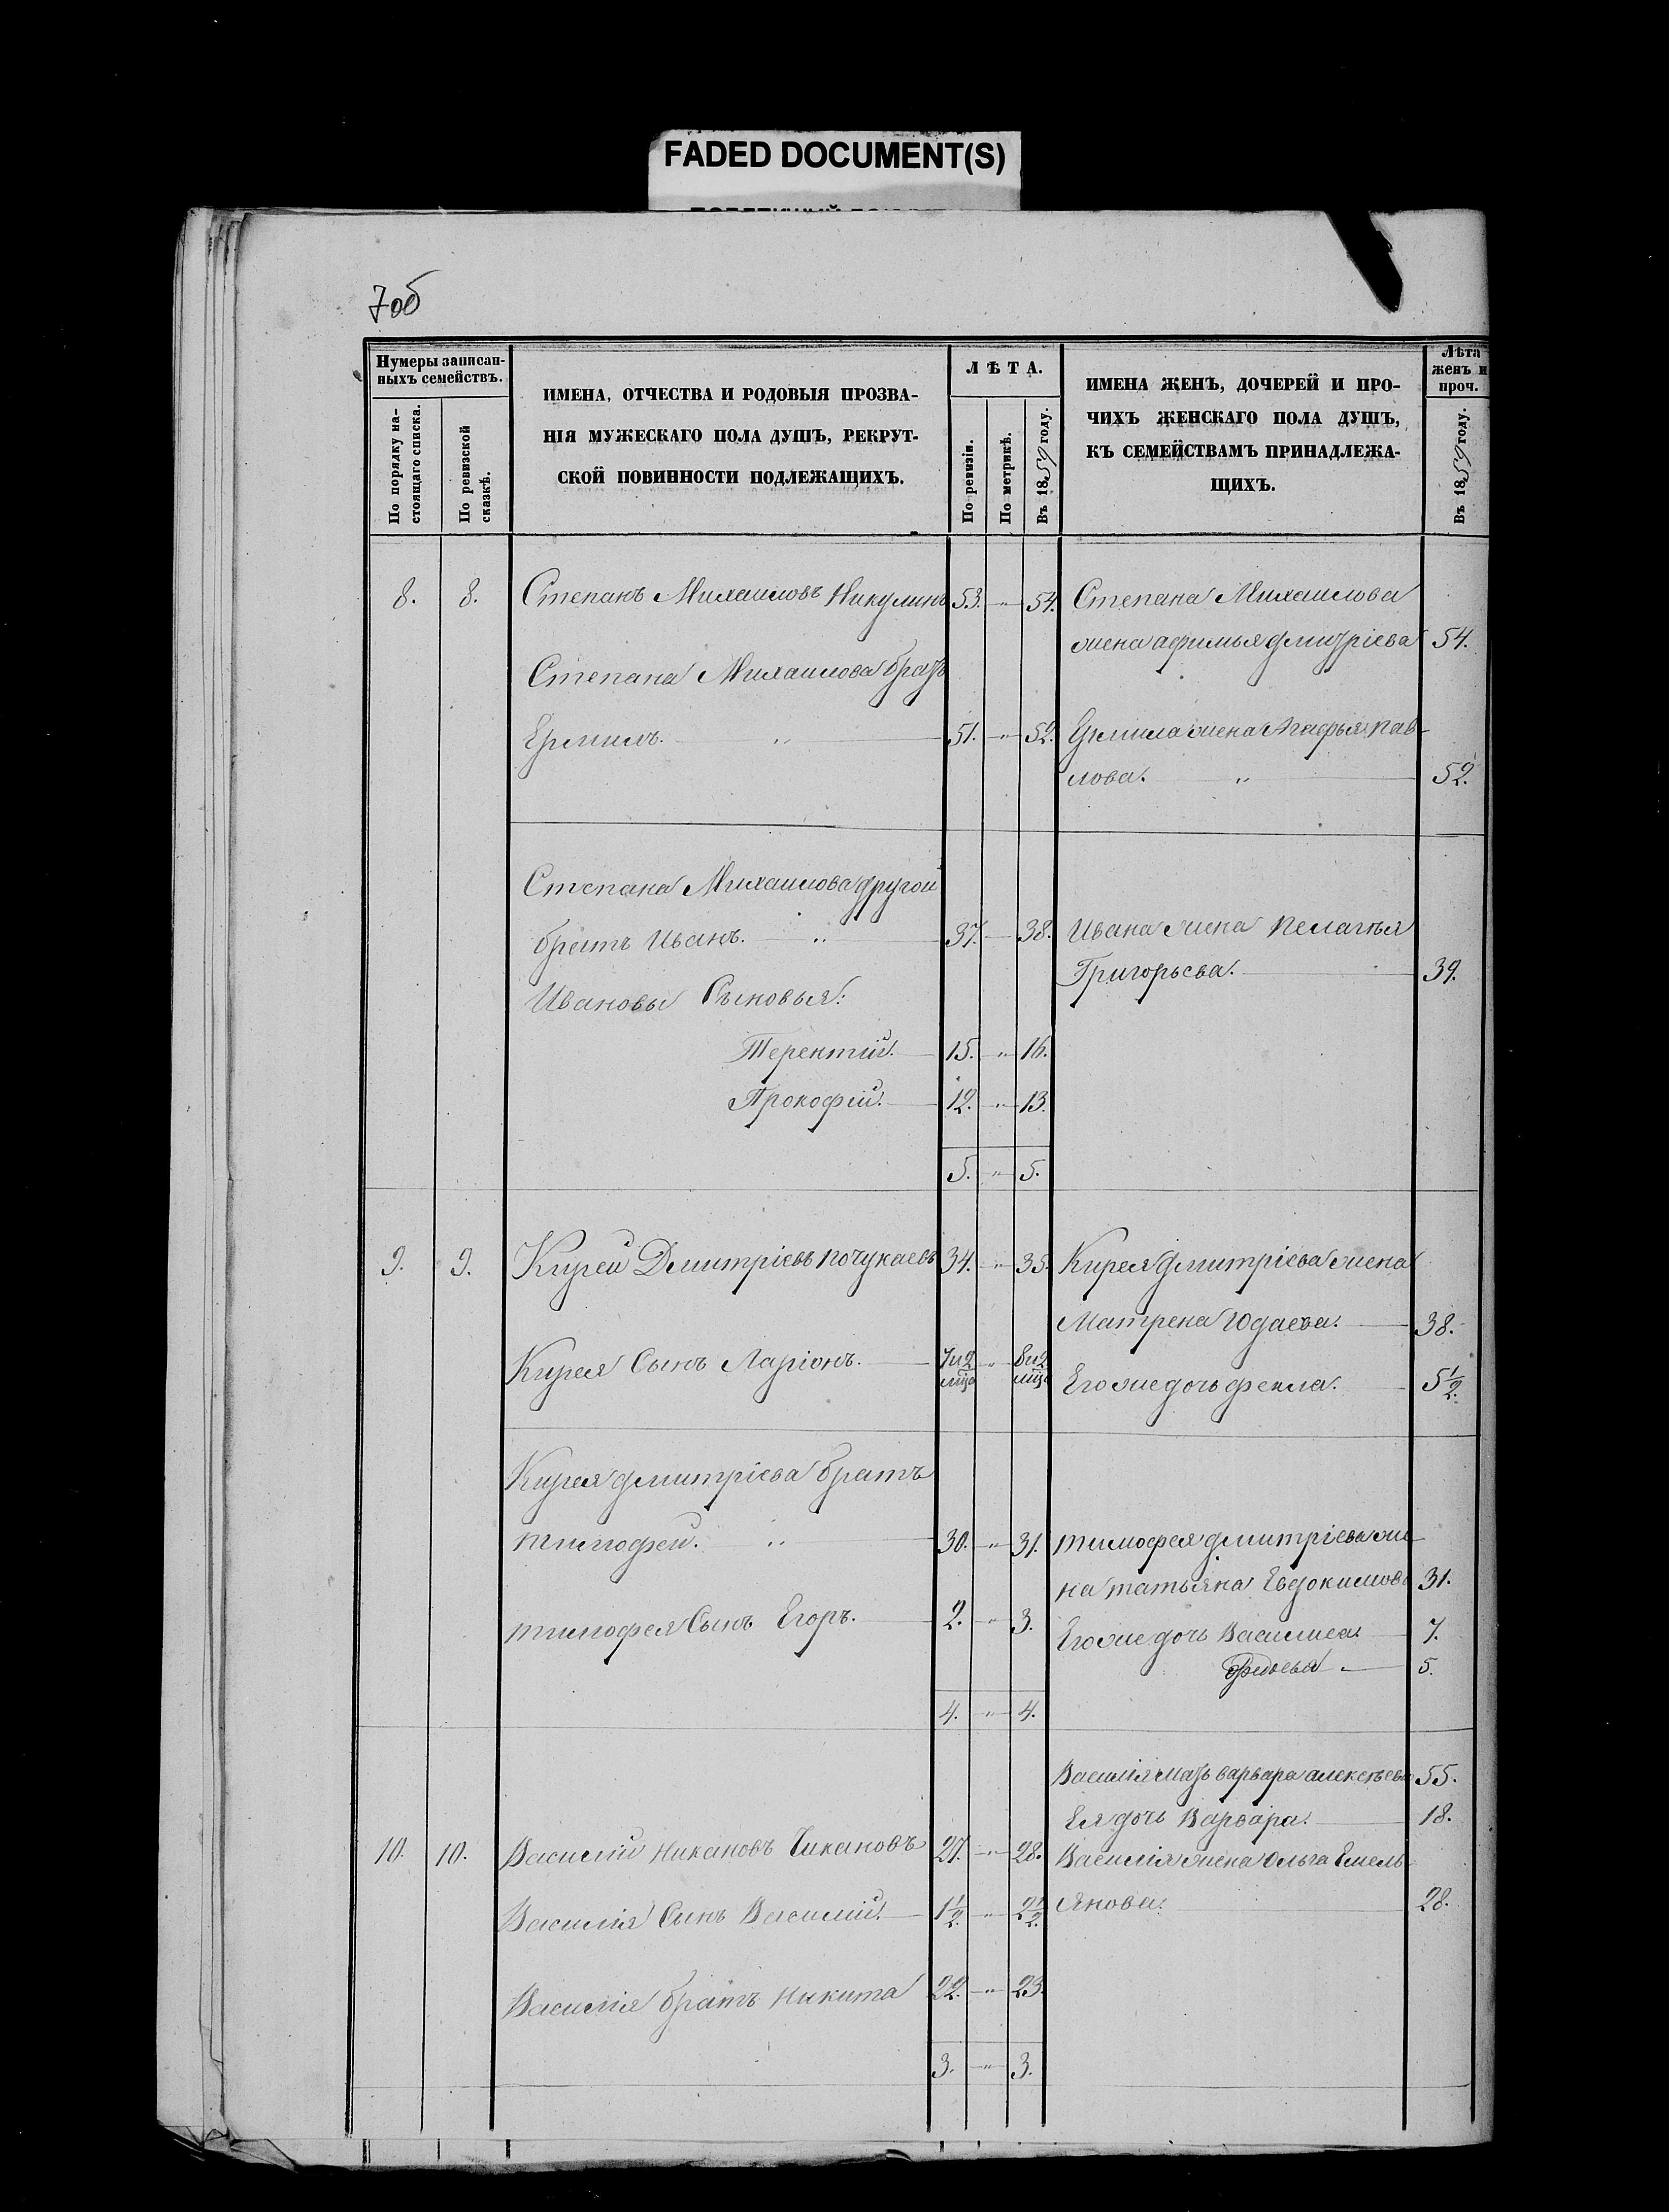 FADED DOCUMENT(S)
7об
Нумеры записан-
ныхъ семействъ.
По порядку на-
стоящаго списка.
По ревизской
сказкѣ.
ИМЕНА, ОТЧЕСТВА И РОДОВЫЯ ПРОЗВА-
НІЯ МУЖЕСКАГО ПОЛА ДУШЪ, РЕКРУТ-
СКОЙ ПОВИННОСТИ ПОДЛЕЖАЩИХЪ.
ЛѢТА.
По ревизіи.
По метрикѣ.
Въ 1859 году.
ИМЕНА ЖЕНЪ, ДОЧЕРЕЙ И ПРО-
ЧИХЪ ЖЕНСКАГО ПОЛА ДУШЪ,
КЪ СЕМЕЙСТВАМЪ ПРИНАДЛЕЖА-
ЩИХЪ.
Лѣта
женъ и
проч.
Въ 1859 году.
8. 8. Степанъ Михаиловъ Никулинъ 53. " 54. Степана Михаилова
жена афимья дмитріева 54.
Степана Михаилова братъ
Ермилъ. " 51. " 52. Ермила жена Агафья пав-
лова. " 52.
Степана Михаилова другой
братъ Иванъ. " 37. 38. Ивана жена пелагѣя
Григорьева. 39.
Ивановы Сыновья:
Терентий. 15. " 16.
Прокофий. 12. " 13.
5. " 5.
9. 9. Кирей Дмитріевъ почукаевъ 34. " 35. Кирея дмитріева жена
Матрена Юдаева. 38.
Кирея Сынъ Ларіонъ. 7и2 мца " 8и2 мца
Его же дочь фекла. 5 1/2.
Кирея дмитріева братъ
тимофей. " 30. " 31. тимофея дмитріева же-
на татьяна Евдокимова 31.
тимофея Сынъ Егоръ. 2. " 3. Его же дочь Василиса. 7.
5.
4. " 4.
Василія мать варвара алексѣева 55.
Ея дочь Варвара. 18.
10. 10. Василий Никановъ Чикановъ 27. " 28. Василія жена Ольга Емель-
янова. 28.
Василія Сынъ Василий. 1 1/2. " 2 1/2.
Василія братъ Никита 22. " 23.
3. " 3.